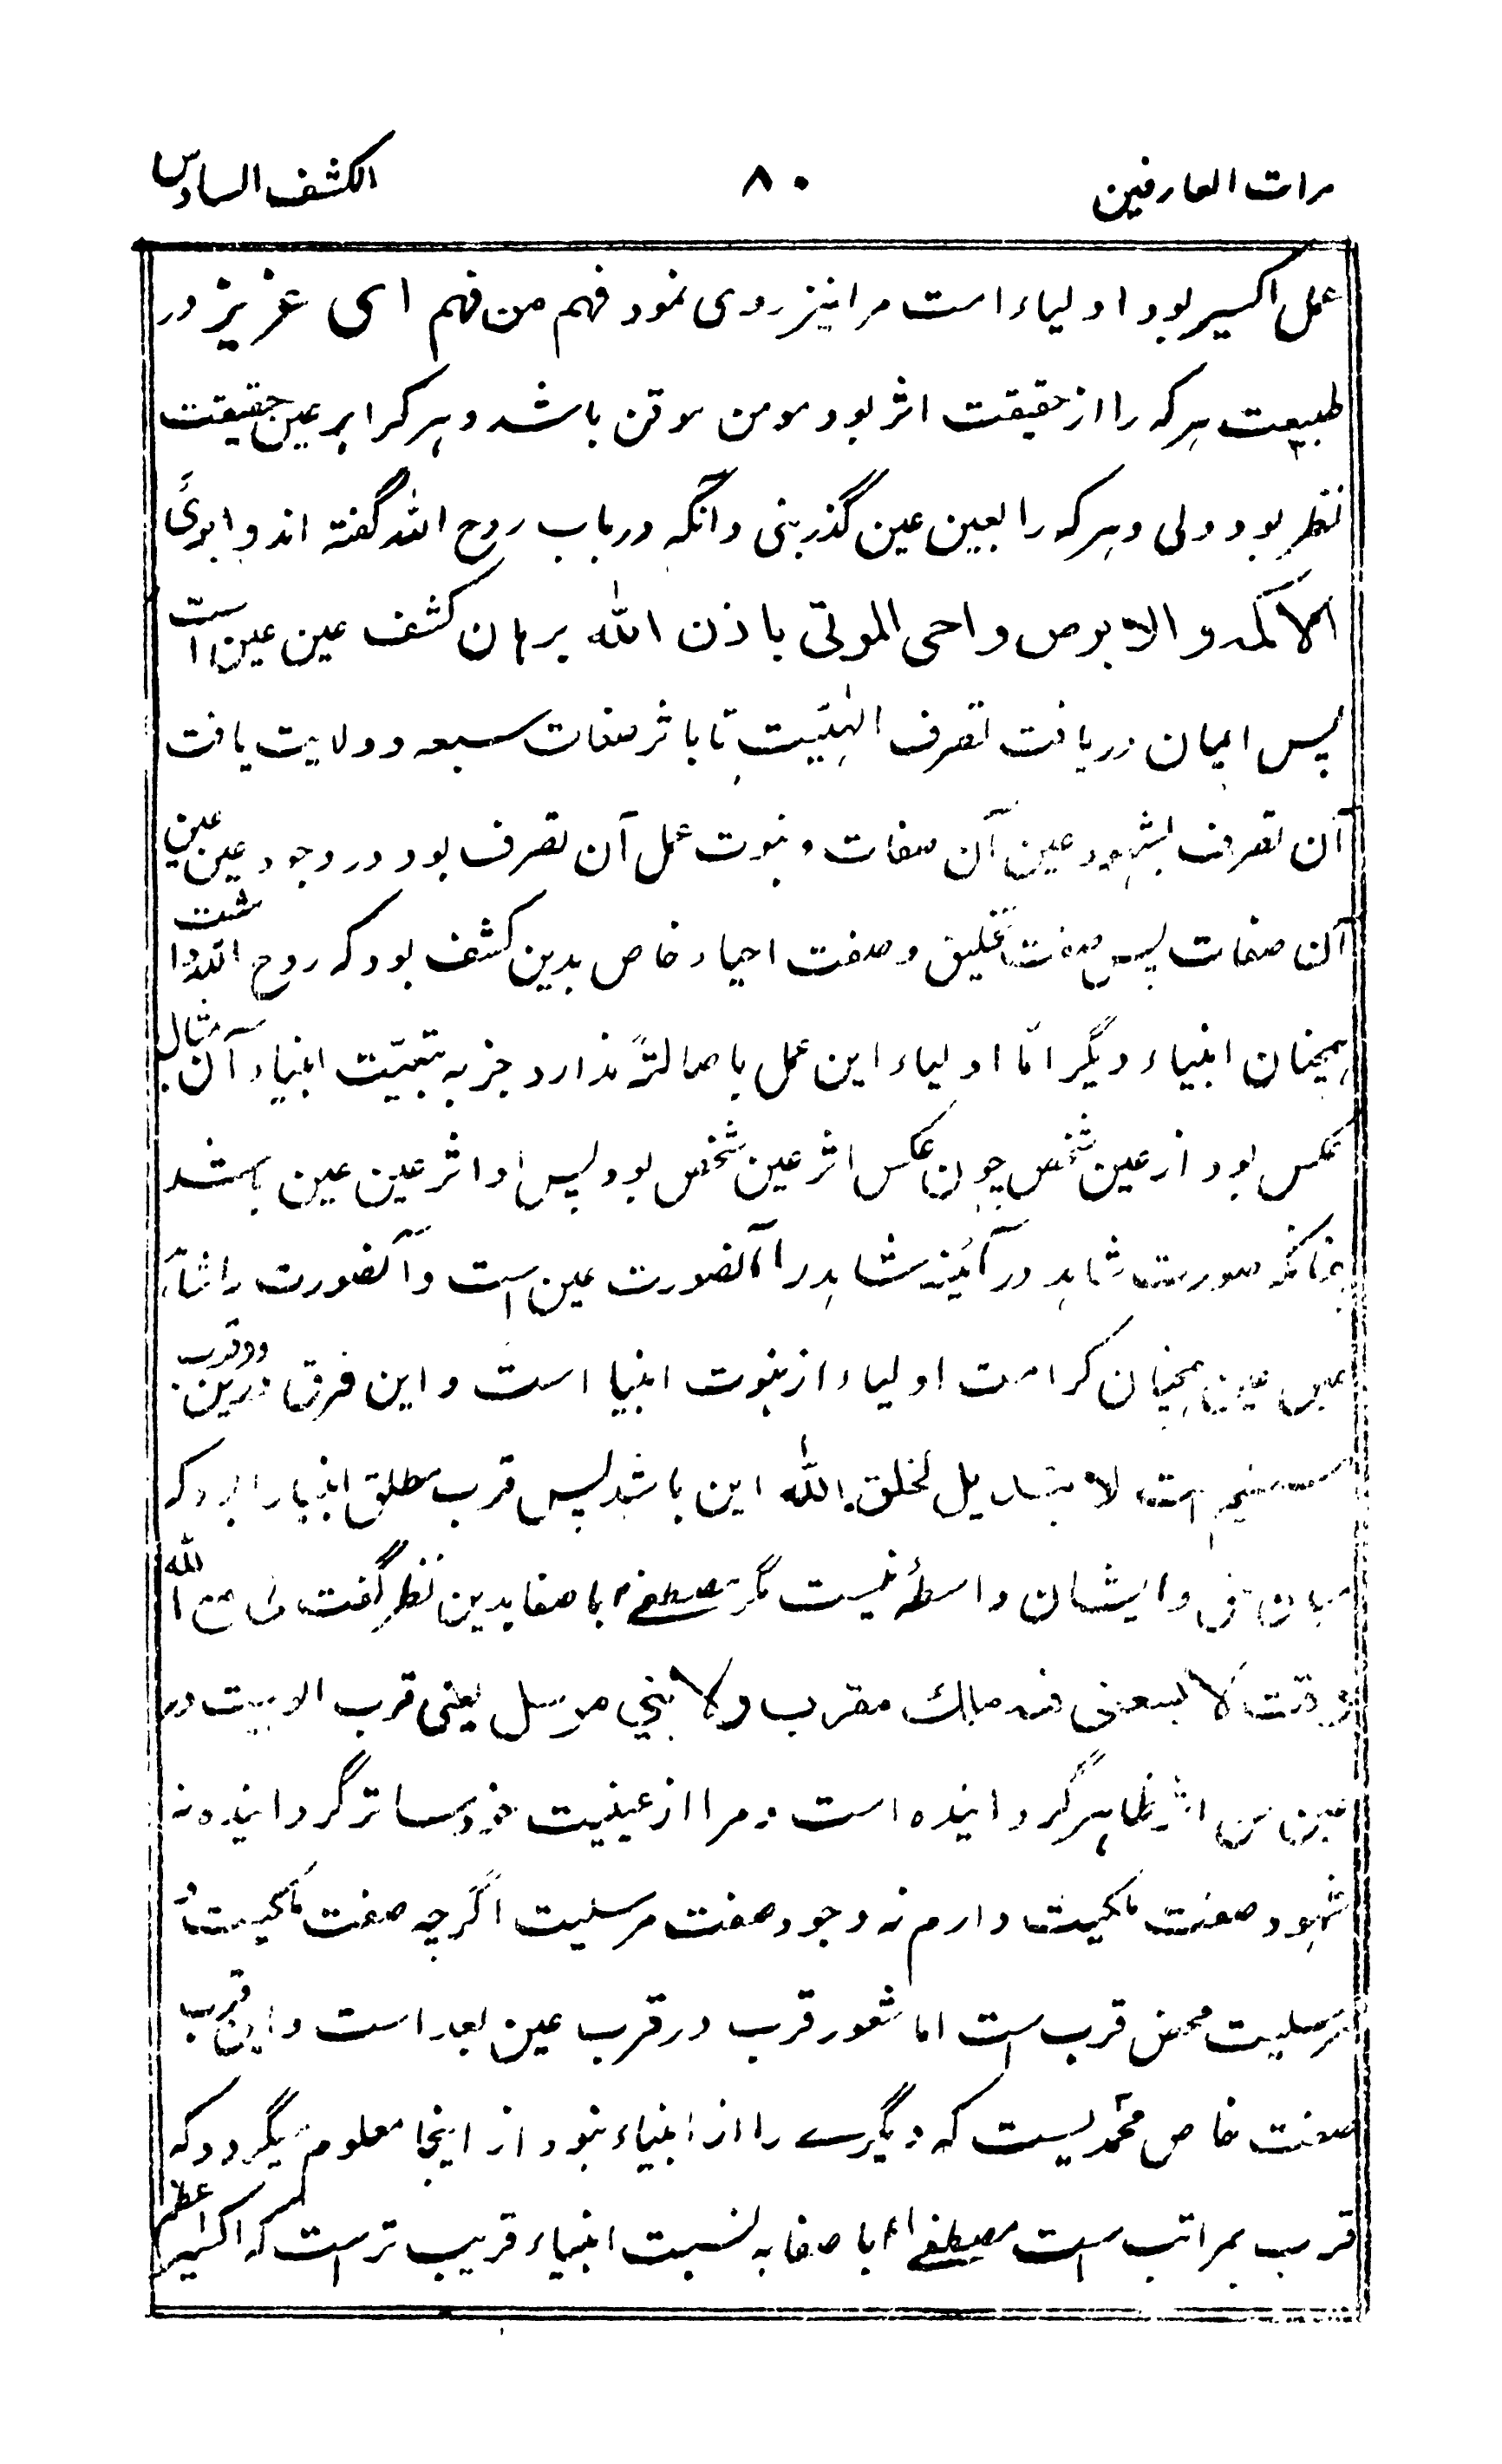 مرات العارفین ۸۰ الکشف السادس
عمل اکسیر بود اولیاء است مرا نیز روی نمود فهم من فهم ای عزیز در
طبیعت هرکه را از حقیقت اثر بود مومن موقن باشد و هرکرا بر عین حقیقت
نظر بود ولی و هرکه را بعین عین گذر بنی و آنگه در باب روح الله گفته اند و ابرئ
الاکمه و الابرص و احی الموتی باذن الله برهان کشف عین عین است
پس ایمان دریافت تصرف الهیت تا باثر صفات سبعه و ولایت یافت
آن تصرف بشهود عین آن صفات و نبوت عمل آن تصرف بود در وجود عین عین
آن صفات پس صفت تخلیق و صفت احیاء خاص بدین کشف بود که روح الله داشت
همچنان انبیاء دیگر امّا اولیاء این عمل باصالةً ندارد جز به تبعیّت انبیاء آن مثال
عکس بود از عین شخص چون عکس اثر عین شخص بود پس او اثر عین عین باشد
چنانکه صورت شاهد در آئینه شاهد را آنصورت عین است و آنصورت را
عین عین همچنان کرامت اولیاء از نبوت انبیا است و این فرق درین دو قرب
است لا تبدیل لخلق الله این باشد پس قرب مطلق انبیا را بود که
میان حق و ایشان واسطهٔ نیست مگر مصطفے با صفا بدین نظر گفت لی مع الله
وقت لا یسعنی فیه ملک مقرب ولا نبي مرسل یعنی قرب در
عین من ظاهر گردانیده است و مرا از عینیت خود ساتر گردانیده نه
شهود صفت ملکیت دارم نه وجود صفت مرسلیت اگرچه صفت ملکیت و
مرسلیت محض قرب ست اما شعور قرب در قرب عین بعد است و این قرب
صفت خاص محمّدیست که دیگرے را از انبیاء نبود از اینجا معلوم میگردد که
قرب بمراتب است مصطفے با صفا به نسبت انبیاء قریب تر است که اکسیر اعظم